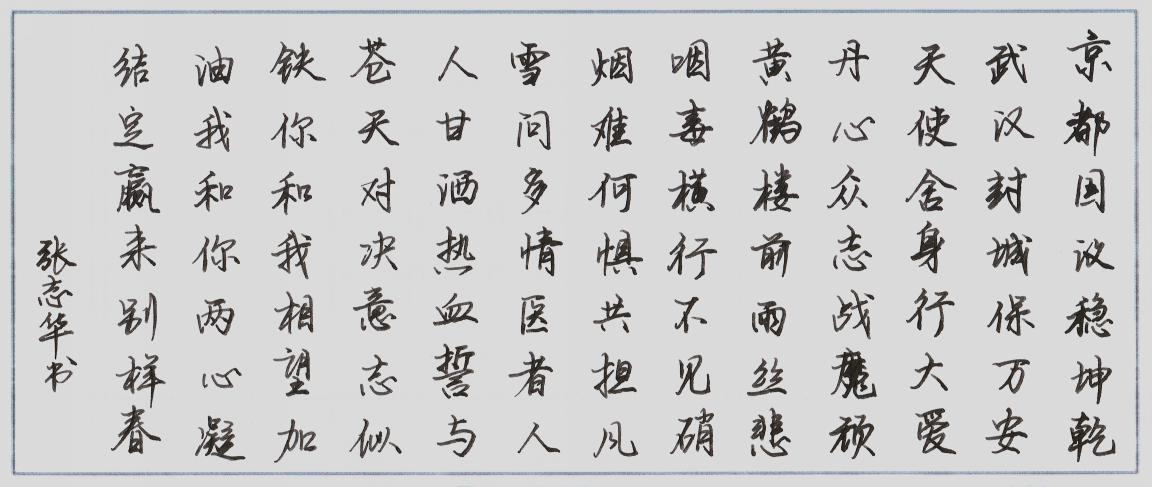 京都国议稳坤乾
武汉封城保万安
天使舍身行大爱
丹心众志战魔顽
黄鹤楼前雨丝悲
咽毒横行不见硝
烟难何惧共担风
雪问多情医者人
人甘洒热血誓与
苍天对决意志似
铁你和我相望加
油我和你两心凝
结定赢来别样春
张志华书